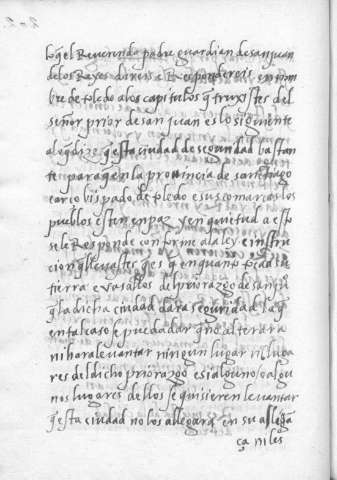 lo q̃ el Reverendo padre guardian de san juan
de los Reyes direis e Respondereis en nom
bre de toledo a los capitulos q̃ truxistes del
señor prior de san juan es lo siguiente
a lo q̃ dize q̃ esta ciudad de seguridad bastan
te para q̃ en la provincia de santhiago
e arçobispado de toledo e sus comarcas los
pueblos esten en paz y en quietud a esto
se le Responde conforme a la ley e instru
cion q̃ llevastes q̃ es q̃ en quanto toca a la
tierra e vasallos del priorazgo de san ju
q̃ la dicha ciudad dara seguridad la q̃
en tal caso se pueda dar q̃ no alterara
ni hara levantar ningun lugar ni luga
res del dicho priorazgo e si alguno, o algu
nos lugares dellos se quisieren levantar
q̃ esta ciudad no los allegara en su allega
ça ni les